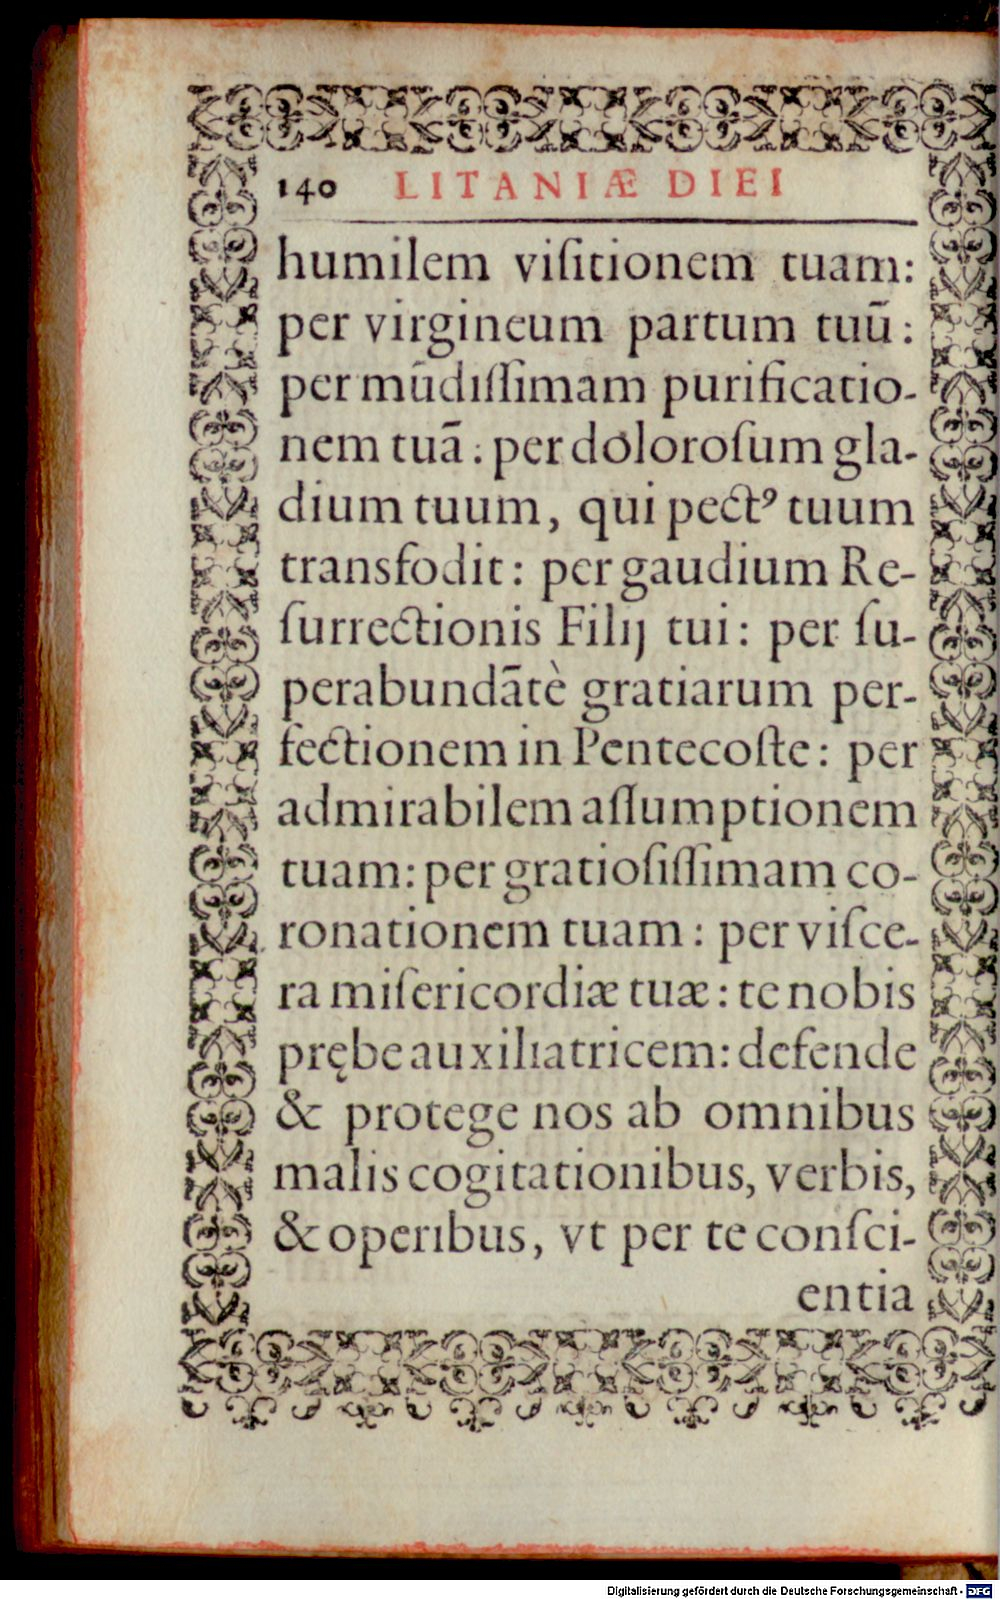 140 LITANIÆ DIEI
humilem viſitionem tuam:
per virgineum partum tuū:
per mūdiſſimam purificatio-
nem tuā: per doloroſum gla-
dium tuum, qui pectꝰ tuum
transfodit: per gaudium Re-
ſurrectionis Filij tui: per ſu-
perabundātè gratiarum per-
fectionem in Pentecoſte: per
admirabilem aſſumptionem
tuam: per gratioſiſſimam co-
ronationem tuam: per viſce-
ra miſericordiæ tuæ: te nobis
prębe auxiliatricem: defende
& protege nos ab omnibus
malis cogitationibus, verbis,
& operibus, vt per te conſci-
entia
Digitalisierung gefördert durch die Deutsche Forschungsgemeinschaft - DFG